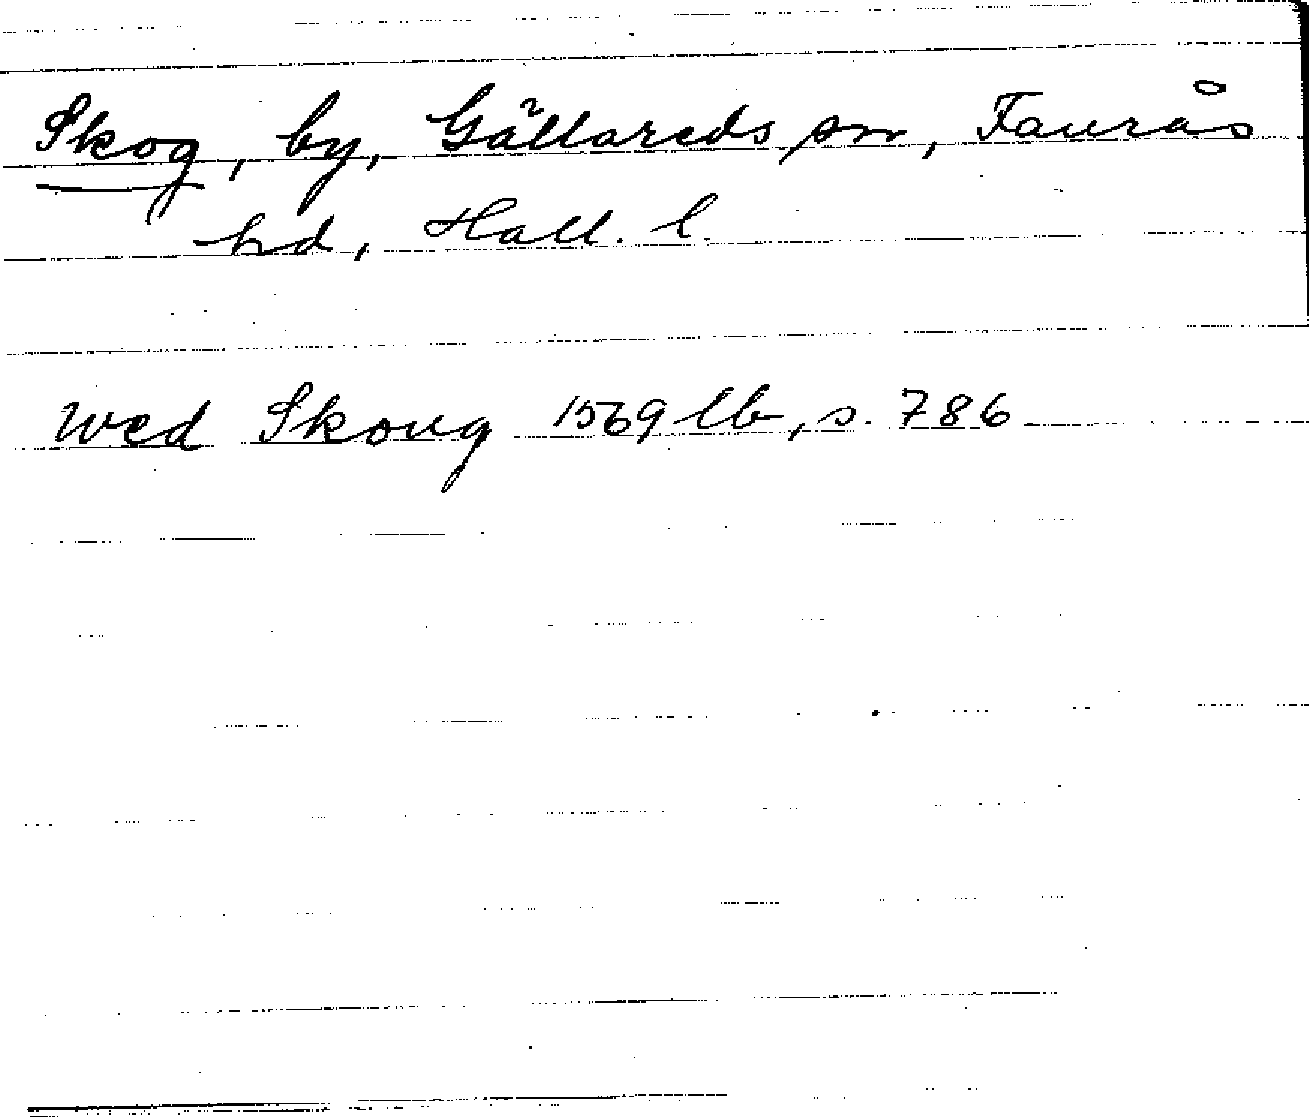 Skog, by, Gällareds sn, Faurås
hd, Hall. l.
wed Skoug 1569 lb, s. 786